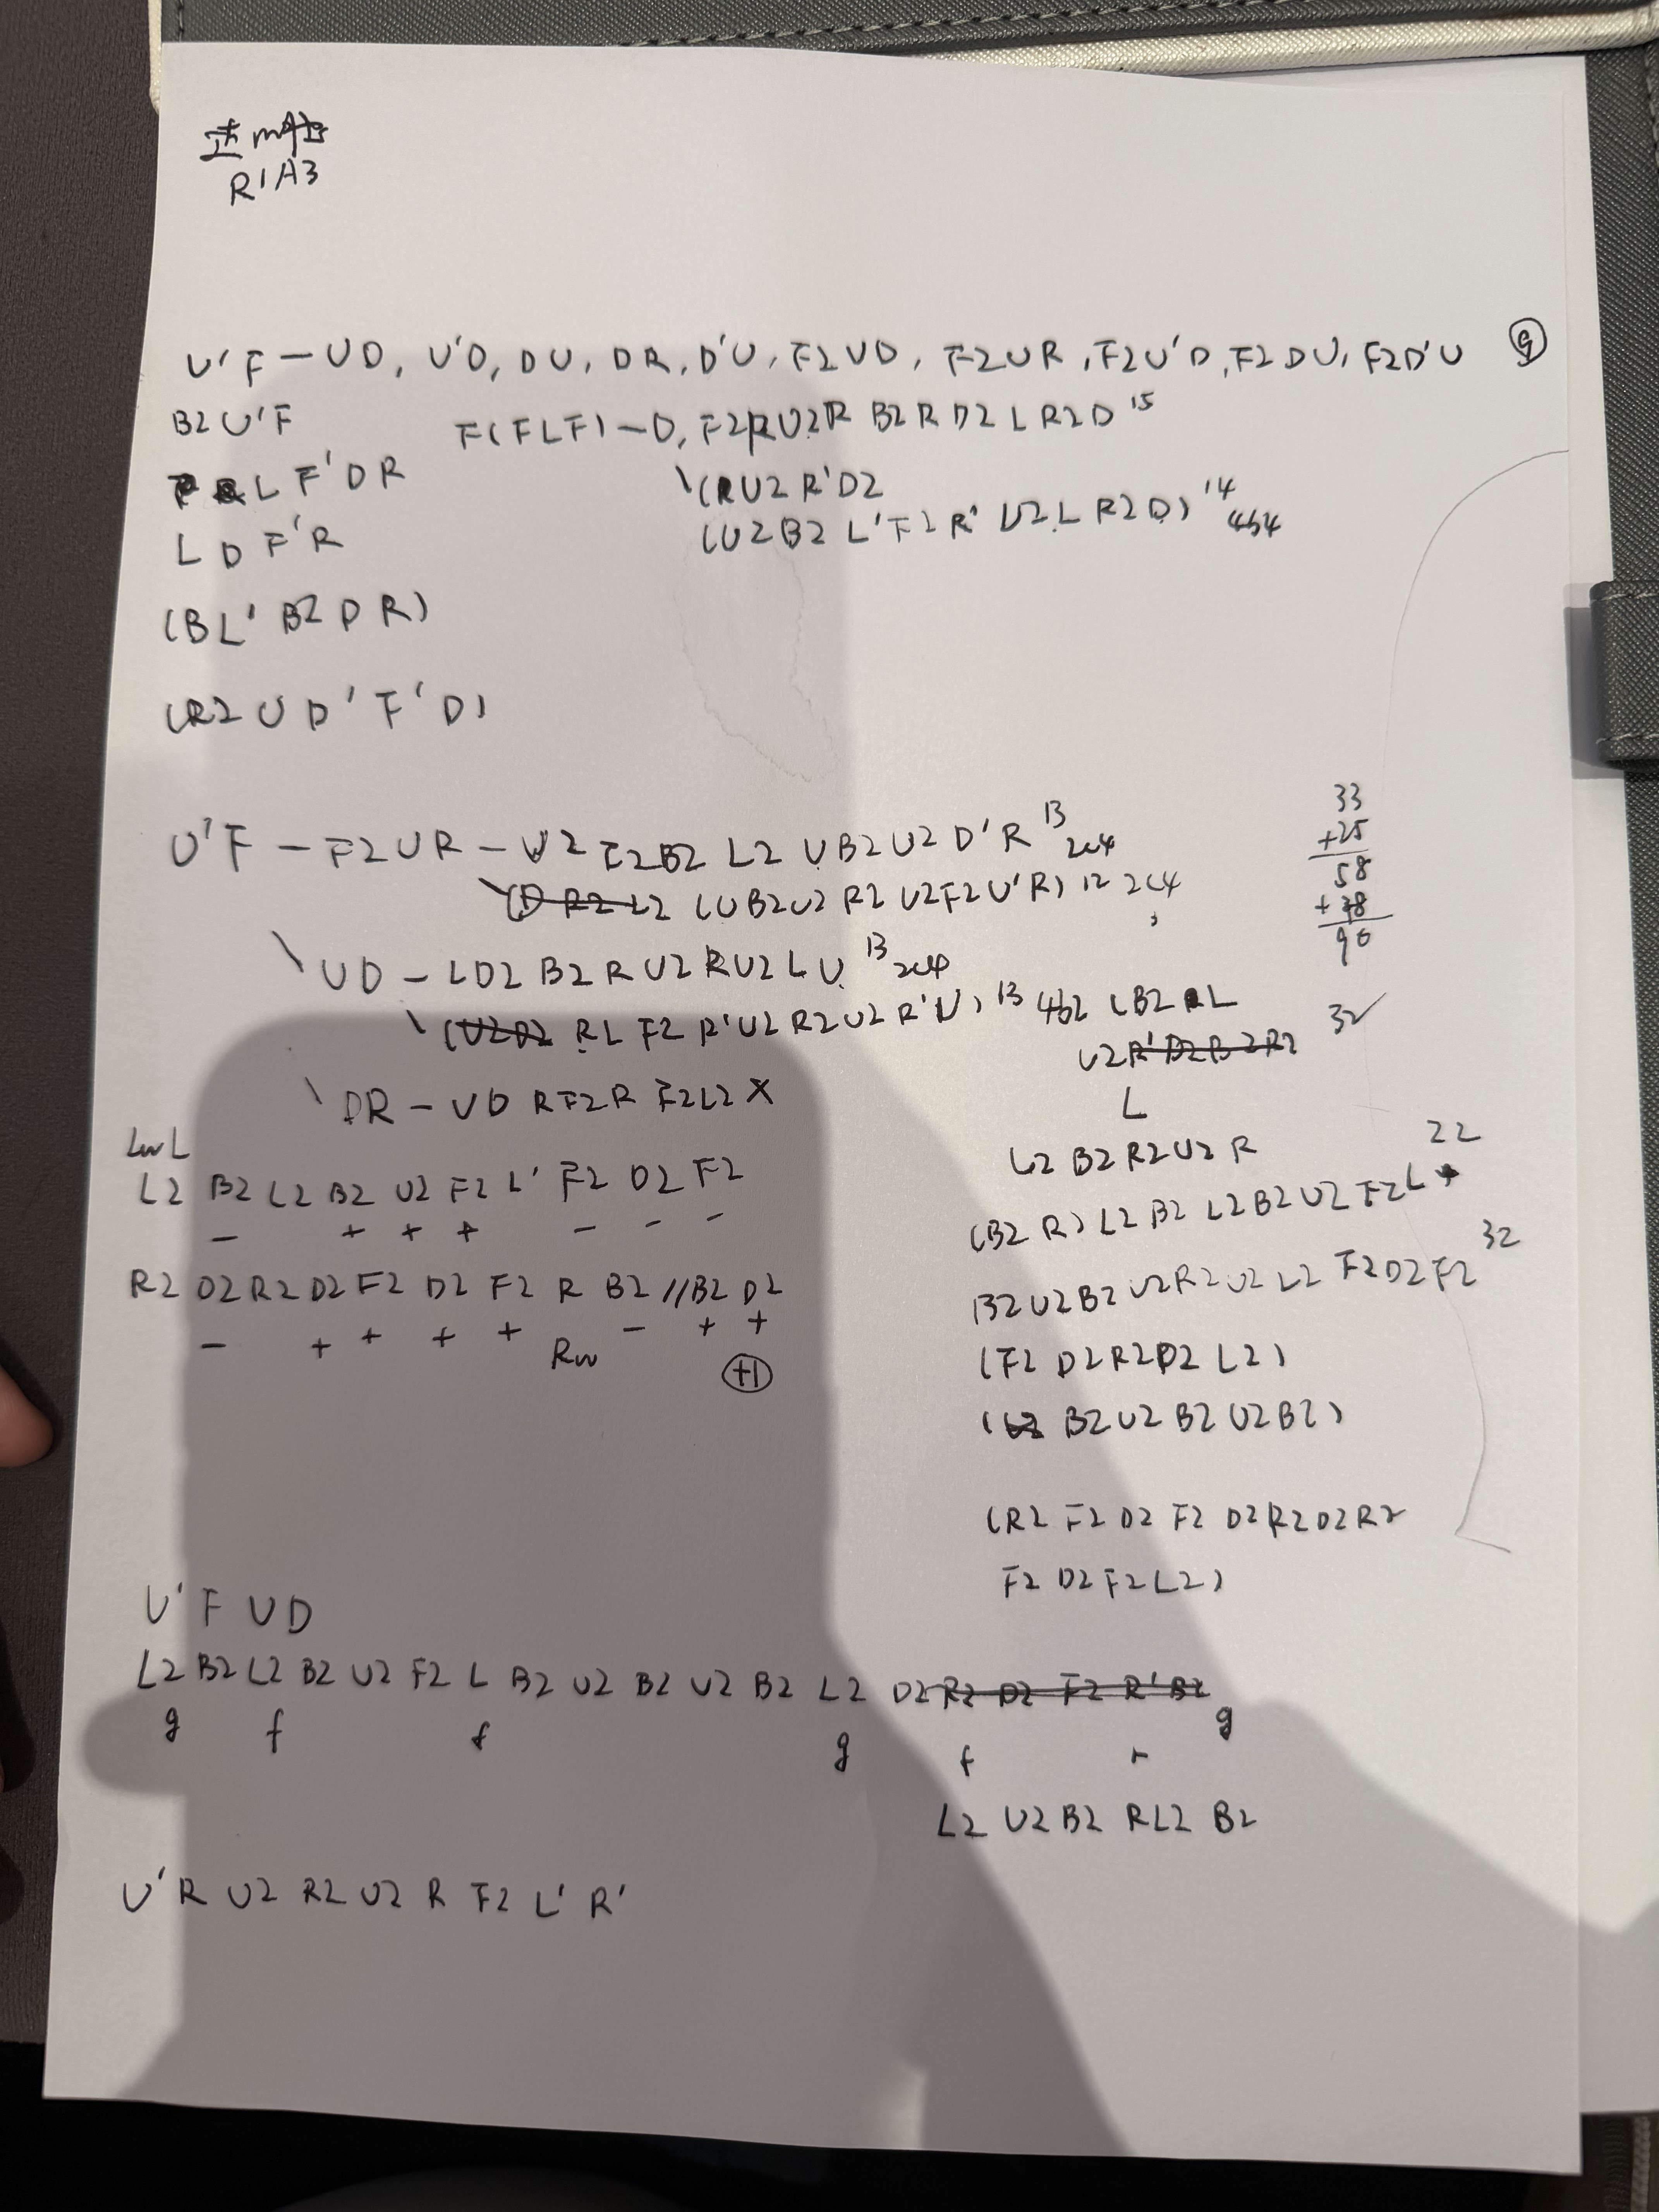 R1A3
U'F - UD, U'D, DU, DR, D'U, F2UD, F2UR, F2U'D, F2DU, F2D'U 9
B2U'F
F(FLF) - D, F2RU2R B2R D2 L R2D 15
L F'DR
\(RU2 R'D2
L D F'R
(U2B2 L'F2R' U2L R2D) 14 4b4
(BL' B2 D R)
(R2 U D' F' D)
U'F - F2UR - U2 F2B2 L2 UB2U2 D'R 13 2c4
\(D R2 L2 (UB2U2 R2 U2F2U'R) 12 2c4
33
+25
58
+38
90
\ UD - LD2 B2 R U2 R U2 L U 13 2c4
\ (U2D2 RL F2 R'U2R2U2R'U) 13 4b2 (B2 L
U2R'D2B2R2 32 ✓
L
\ DR - UD RF2R F2L2 X
LwL
L2 B2 L2 B2 U2 F2 L' F2 D2 F2
- + + + - - -
R2 D2 R2 D2 F2 D2 F2 R B2 // B2 D2
- + + + + Rw - + +
+1
L2 B2 R2 U2 R 22
(B2 R) L2 B2 L2B2U2 F2L
B2U2B2 U2R2U2 L2 F2D2F2 32
(F2 D2R2D2 L2)
(U2 B2U2 B2 U2B2)
(R2 F2 D2 F2 D2R2D2R2
F2 D2F2L2)
U' F U D
L2 B2 L2 B2 U2 F2 L B2 U2 B2 U2 B2 L2 D2 R2 D2 F2 R' B2
g f f g f r g
L2 U2 B2 R L2 B2
U' R U2 R2 U2 R F2 L' R'